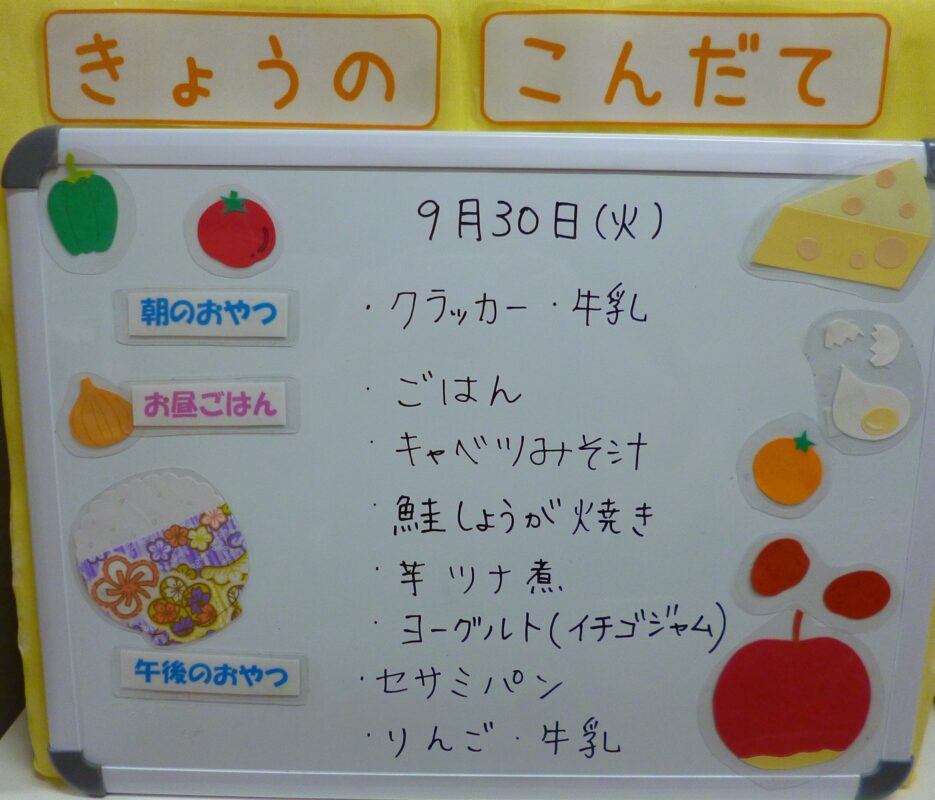 きょうの こんだて
9月30日(火)
朝のおやつ ・クラッカー・牛乳
お昼ごはん ・ごはん
・キャベツみそ汁
・鮭しょうが焼き
・芋ツナ煮
・ヨーグルト(イチゴジャム)
午後のおやつ ・セサミパン
・りんご・牛乳